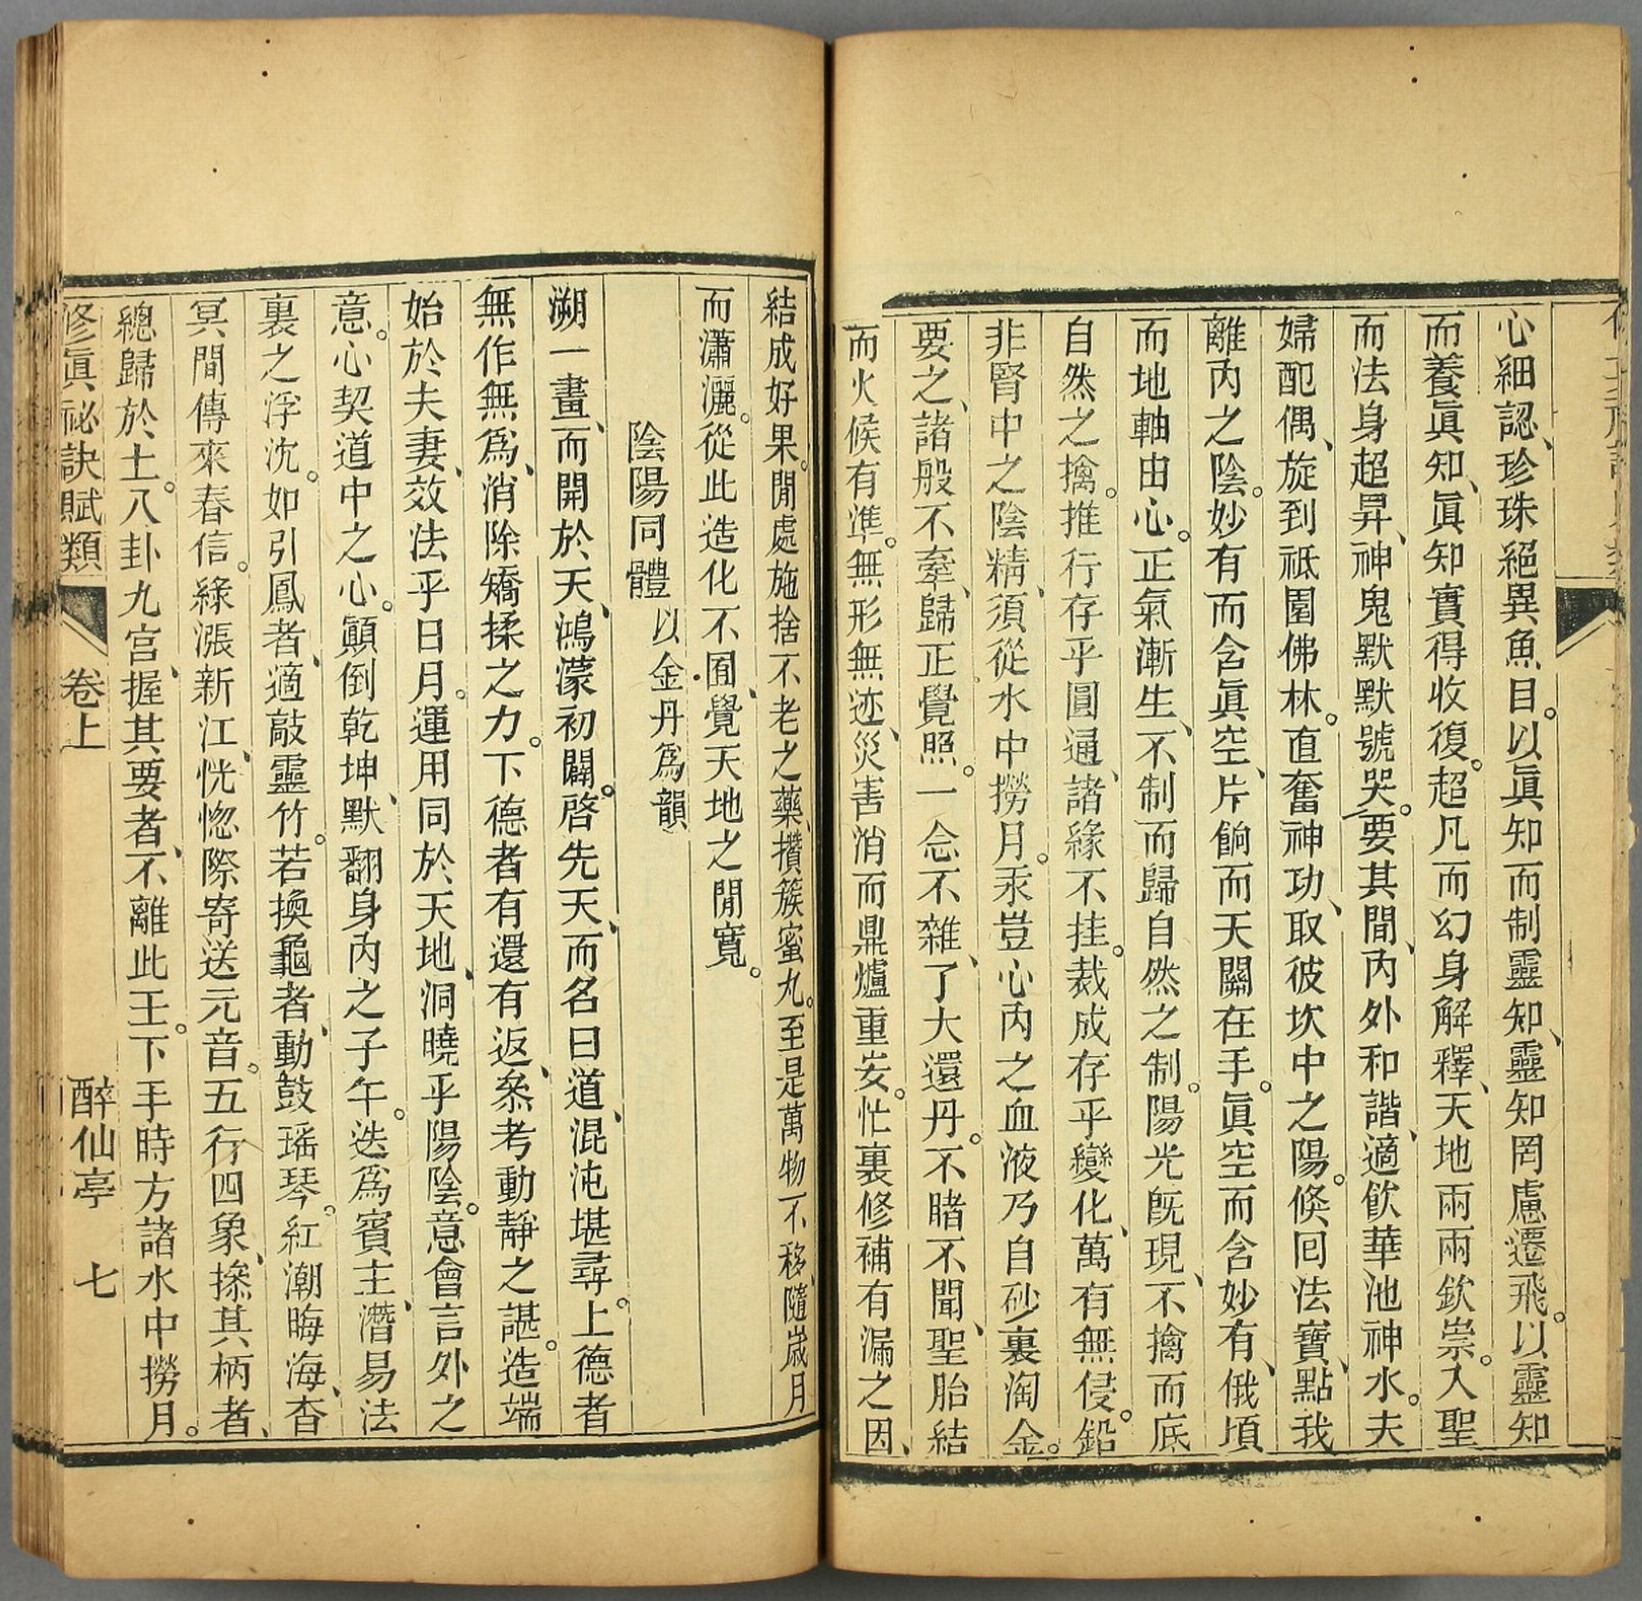 心細認、珍珠絕異魚目。以眞知而制靈知、靈知罔慮遷飛。以靈知
而養眞知、眞知實得收復。超凡而幻身解釋、天地兩兩欽崇。入聖
而法身超昇、神鬼默默號哭。要其間、內外和諧、適飲華池神水。夫
婦配偶、旋到祗園佛林。直奮神功、取彼坎中之陽。倏回法寶、點我
離內之陰。妙有而含眞空、片餉而天關在手。眞空而含妙有、俄頃
而地軸由心。正氣漸生、不制而歸自然之制。陽光旣現、不擒而底
自然之擒。推行存乎圓通、諸緣不挂。裁成存乎變化、萬有無侵。鉛
非腎中之陰精、須從水中撈月。汞豈心內之血液、乃自砂裏淘金。
要之、諸般不牽、歸正覺照。一念不雜、了大還丹。不睹不聞、聖胎結
而火候有準。無形無迹、災害消而鼎爐重安。忙裏修補有漏之因、
結成好果。閒處施捨不老之藥、攢簇蜜丸。至是萬物不移、隨歲月
而瀟灑。從此造化不囿、覺天地之閒寬。
陰陽同體 以金丹爲韻
溯一畫、而開於天、鴻濛初闢。啓先天、而名曰道、混沌堪尋。上德者
無作無爲、消除矯揉之力。下德者有還有返、叅考動靜之諶。造端
始於夫妻、效法乎日月。運用同於天地、洞曉乎陽陰。意會言外之
意。心契道中之心。顚倒乾坤、默翻身內之子午。迭爲賓主、潛易法
裏之浮沈。如引鳳者、適敲靈竹。若換龜者、動鼓瑤琴。紅潮晦海、杳
冥間傳來春信。綠漲新江、恍惚際寄送元音。五行四象、摻其柄者、
總歸於土。八卦九宮、握其要者、不離此王。下手時方諸水中撈月。
修眞祕訣賦類 卷上 醉仙亭 七